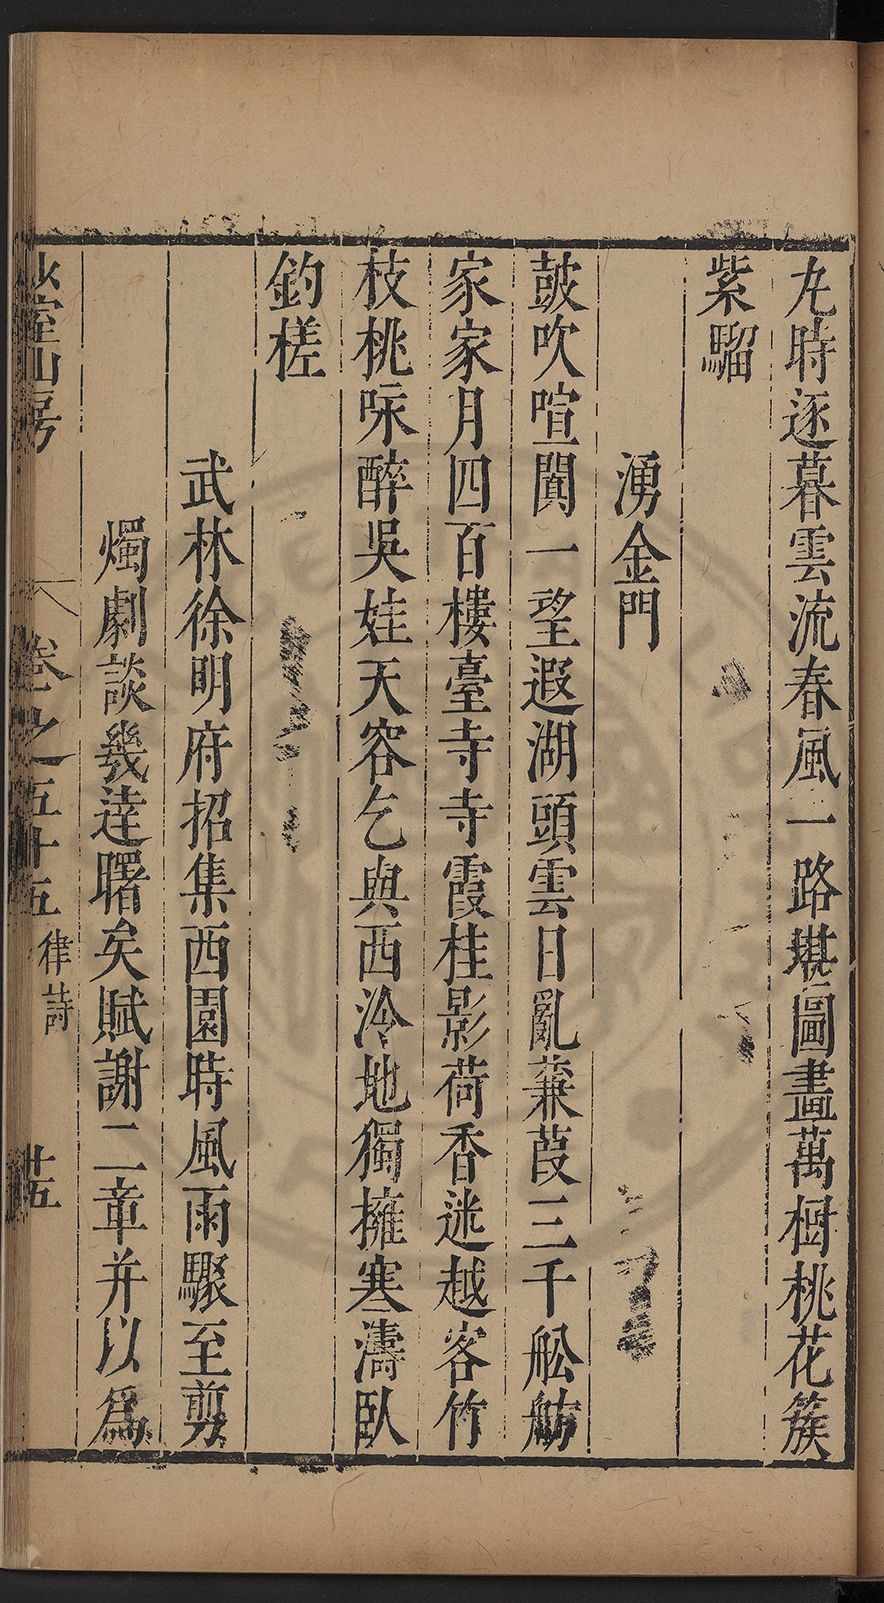 九時逐暮雲流春風一路堪圖畫萬樹桃花簇
紫騮
湧金門
鼓吹喧闐一望遐湖頭雲日亂蒹葭三千舩舫
家家月四百樓臺寺寺霞桂影荷香迷越客竹
枝桃咏醉吳娃天容乞與西泠地獨擁寒濤臥
釣槎
武林徐明府招集西園時風雨驟至剪
燭劇談幾達曙矣賦謝二章并以為
室山房
卷之五十五
律詩
廿五